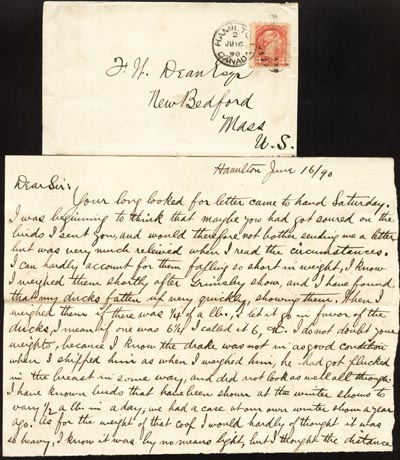 HAMILTON
2
JU 16
90
CANADA
F. W. Dean Esq
New Bedford
Mass
U. S.
Hamilton June 16/90
Dear Sir;
Your long looked for letter came to hand Saturday.
I was beginning to think that maybe you had got soured on the
birds I sent you, and would therefore not bother sending me a letter
but was very much relieved when I read the circumstances.
I can hardly account for them falling so short in weight, I know
I weighed them shortly after Grimsby show, and I have found
that my ducks fatten up very quickly, showing them. When I
weighed them if there was 1/4 of a lb., I let it go in favor of the
ducks, I mean if one was 6 1/4 I called it 6, &c. I do not doubt your
weights, because I know the drake was not in as good condition
when I shipped him as when I weighed him, he had got plucked
in the breast in some way, and did not look as well all though
I have known birds that have been shown at the winter shows to
vary 1/2 a lb. in a day, we had a case at our own winter show a year
ago. As for the weight of that coop I would hardly of thought it was
so heavy, I know it was by no means light, but I thought the distance